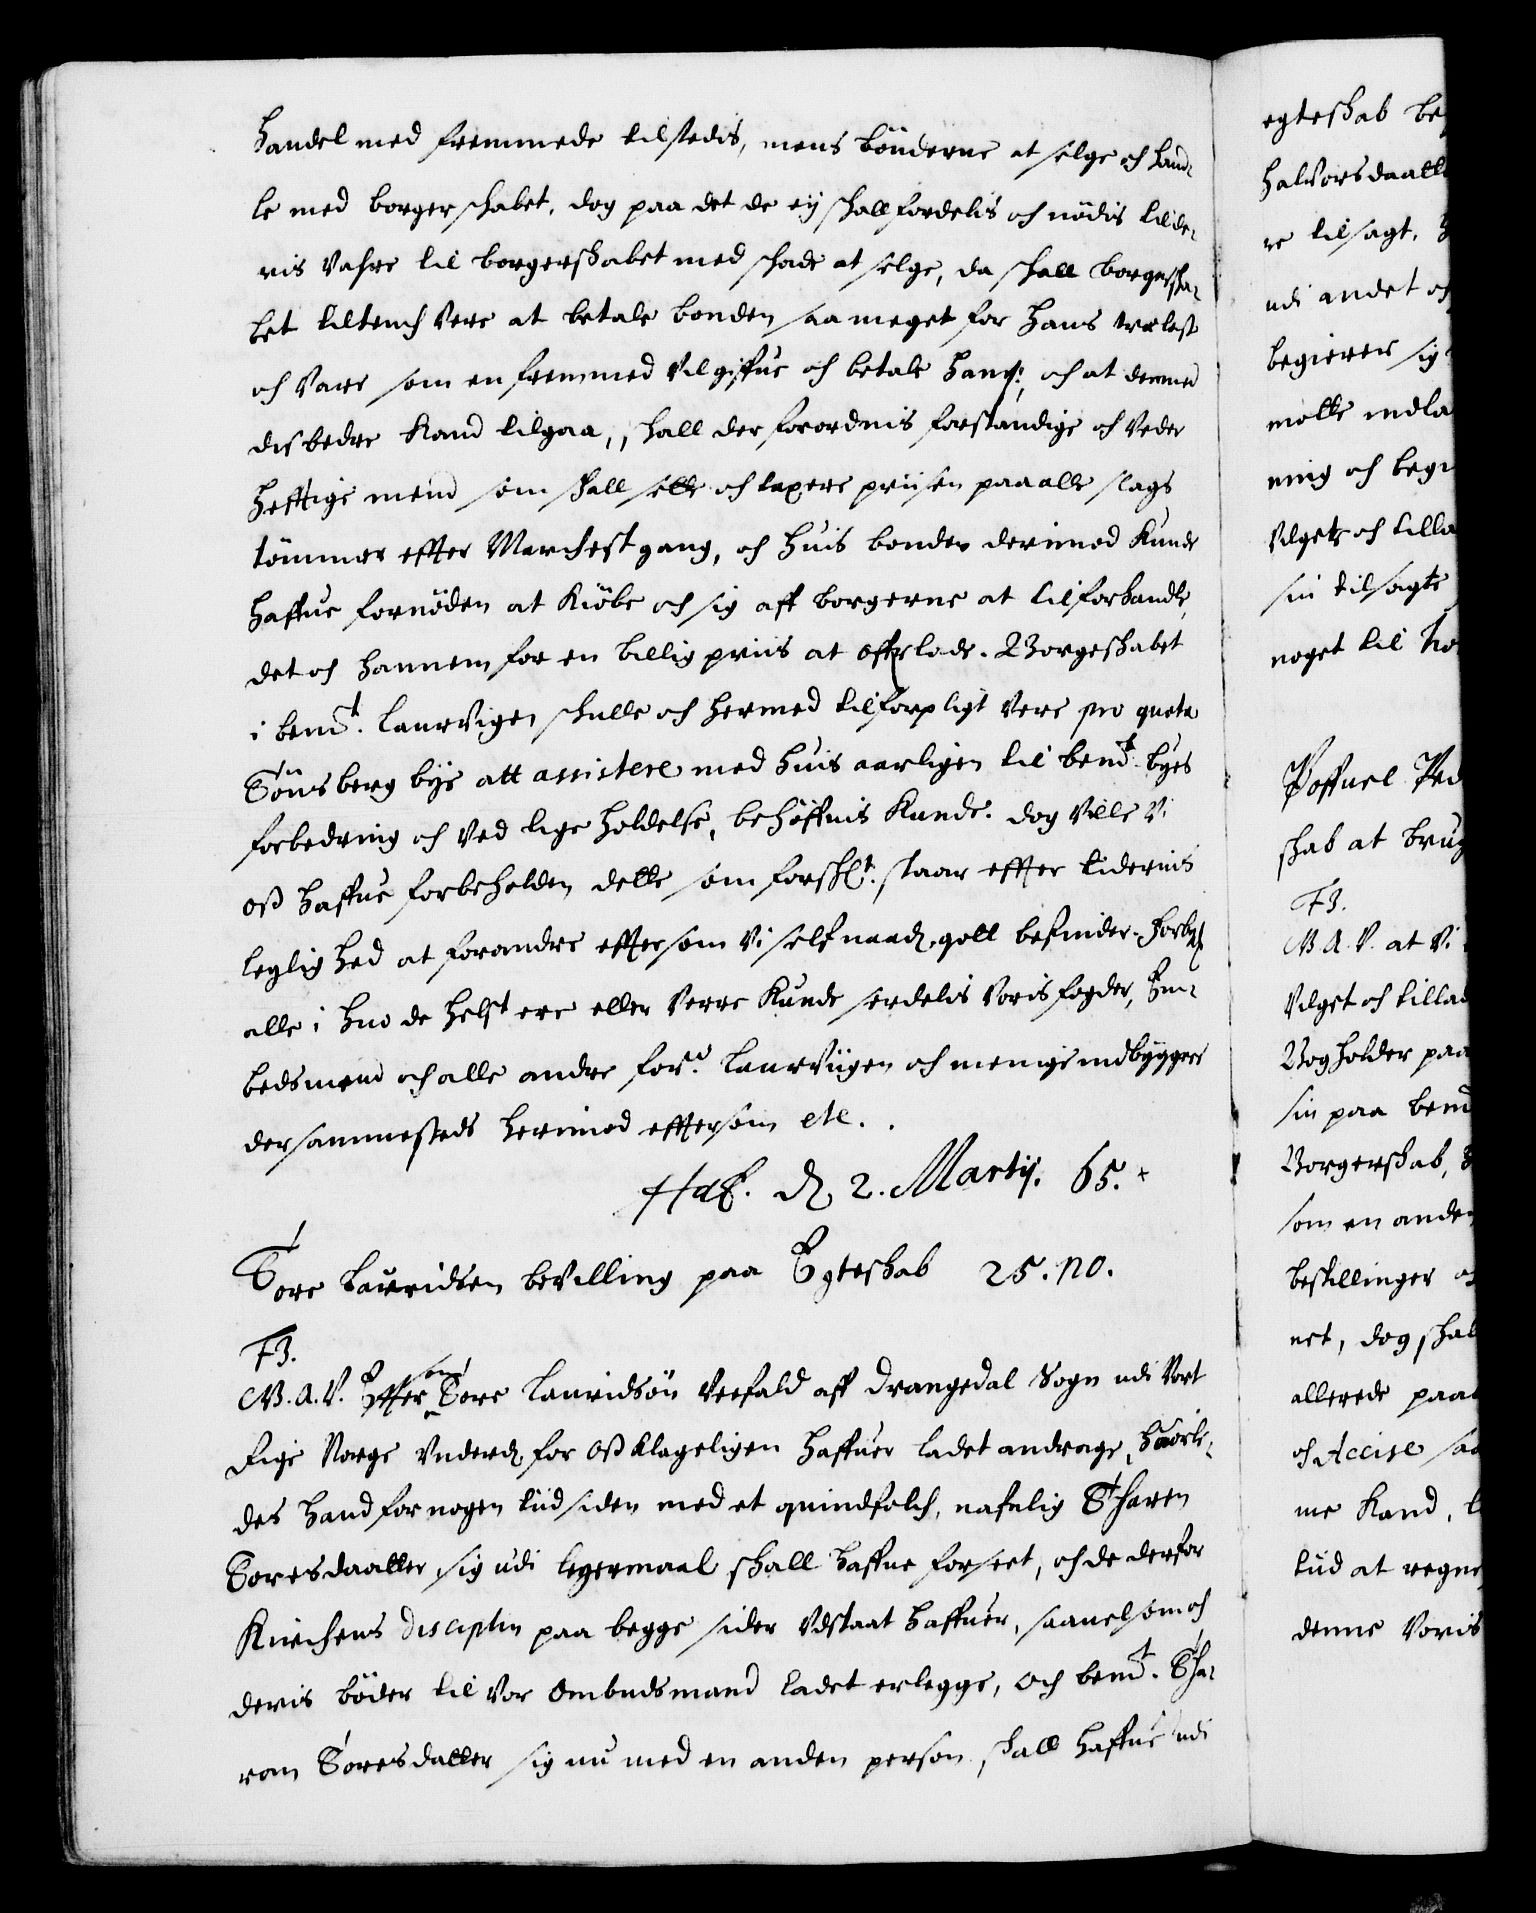 handel med fremmede tilstedis, mens bönderne at selge och hand-
le med borgerskabet, dog paa det de eij skall fordelis och nödis til de-
ris Vahre til borgerskabet med skade at selge, da skall borgerska-
bet tiltenckt Vere at betale bonden saa meget for hans trælast
och Vare som en fremmed Vil giffue och betale hans, och at dermed
dis bedre Kand tilgaa, skall der forordnis forstandige och Veder
hefftige mend som skall sette och taxere priisen paa alle slags
tömmer effter Marckest gang, och huis bonden derimod Kunde
haffue fornöden at Kiöbe och sig aff borgerne at tilforhandle,
det och hannem for en billig priis at offerlade. Borgeskabet
i bemt. Laurvigen skulle och hermed tilforpligt Vere pro quota
Tönsberg bÿe att assistere med huis aarligen til bemt. byes
forbedring och Ved lige holdelse, behöffuis Kunde. dog Ville Vi
oss haffue forbeholden dette som forskt. staar effter tidernis
leglighed at forandre effter som Vi self naad. gott befinder. Forbd
alle i huo de helst ere eller Verre Kunde serdelis Voris fogder, Em-
bedsmend och alle andre for: Laurviigen och menige indbyggere
dersammesteds herimod efftersom etc.
Haf. d 2. Martij. 65.
Tore Lauridsen beVilling paa Egteskab 25. no.
F3.
G.A.V. Effter som Tore Lauridsön Veefald aff Drangedal Sogn udi Vort
Rige Norge Vnderd for oss klageligen haffuer ladet andrage, huorle-
des hand for nogen tiid siden med et quindfolch, nafnlig Tharen
Toresdaatter sig udi legermaal skall haffue forseet, och de derfor
Kirckens disciplin paa begge sider Vdstaat haffuer, saauelsom och
deris böder til Vor Ombudsmand ladet erlegge, och bemt. Tha-
ran Toresdatter sig nu med en anden person skall haffue udi
egteskab be
halvorsdaatt
re tilsagt,
udi andet oc
begierer sig
motte indla
ning och begi
Vilget och tilla
sin tilsagte
noget til
Poffuel Ped
skab at brug
F3.
G.A.V. at Vi
Vilget och tillad
Bogholder paa
sin paa bem
Borgerskab,
som en anden
bestillinger
net, dog skal
allerede paa
och Accise saa
me Kand,
tiid at regne
denne Voris